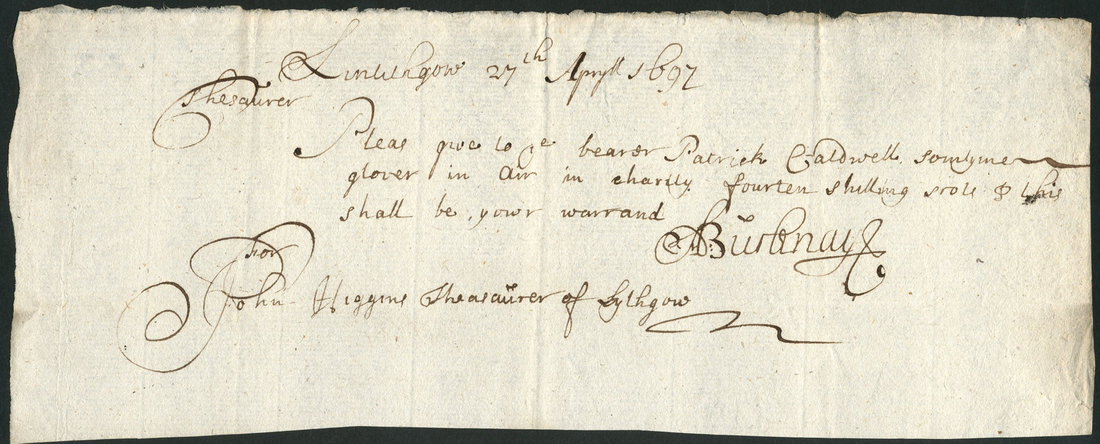 Linlithgow 27th Apryll 1697
Thesaurer
Pleas give to ye bearer Patrick Caldwell somtyme
glover in Air in charity fourten shilling scots & this
shall be your warrand
For
John Higgins Theasaurer of Lythgow